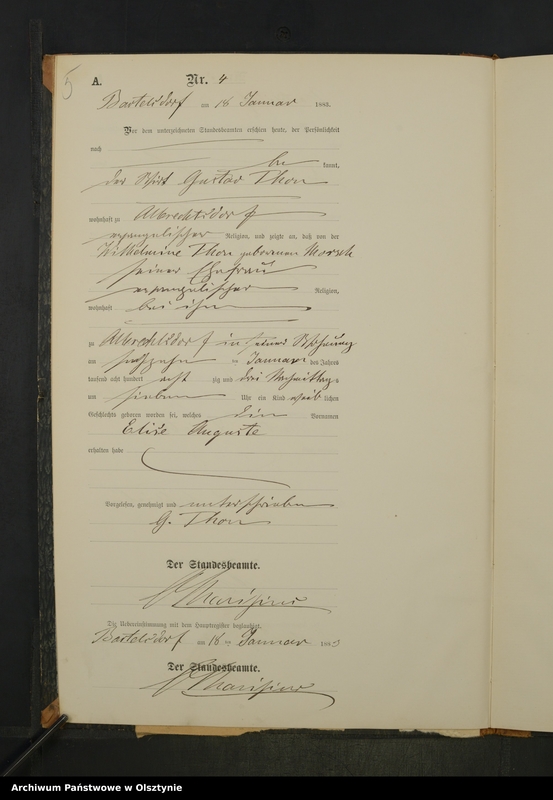 5
A.
Nr. 4
Bartelsdorf am 18 Januar 1883.
Vor dem unterzeichneten Standesbeamten erschien heute, der Persönlichkeit
nach
be kannt,
der Wirt Gustav Thon
wohnhaft zu Albrechtsdorf
evangelischer Religion, und zeigte an, daß von der
Wilhelmine Thon geborenen Morsch
seiner Ehefrau
evangelischer Religion,
wohnhaft bei ihm
zu Albrechtsdorf in seiner Wohnung
am sechzehn ten Januar des Jahres
tausend acht hundert acht zig und drei Nachmittags
um sieben Uhr ein Kind weib lichen
Geschlechts geboren worden sei, welches die Vornamen
Elise Auguste
erhalten habe
Vorgelesen, genehmigt und unterschrieben
G. Thon
Der Standesbeamte.
Die Uebereinstimmung mit dem Hauptregister beglaubigt.
Bartelsdorf am 18 ten Januar 1883
Der Standesbeamte.
Archiwum Państwowe w Olsztynie